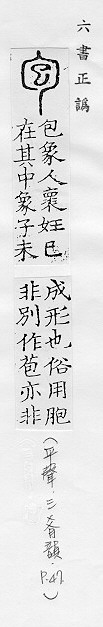 六書正譌
包象人裹妊巳
在其中象子未
成形也俗用胞
非別作苞亦非
(平聲.三肴韻.P.47.)